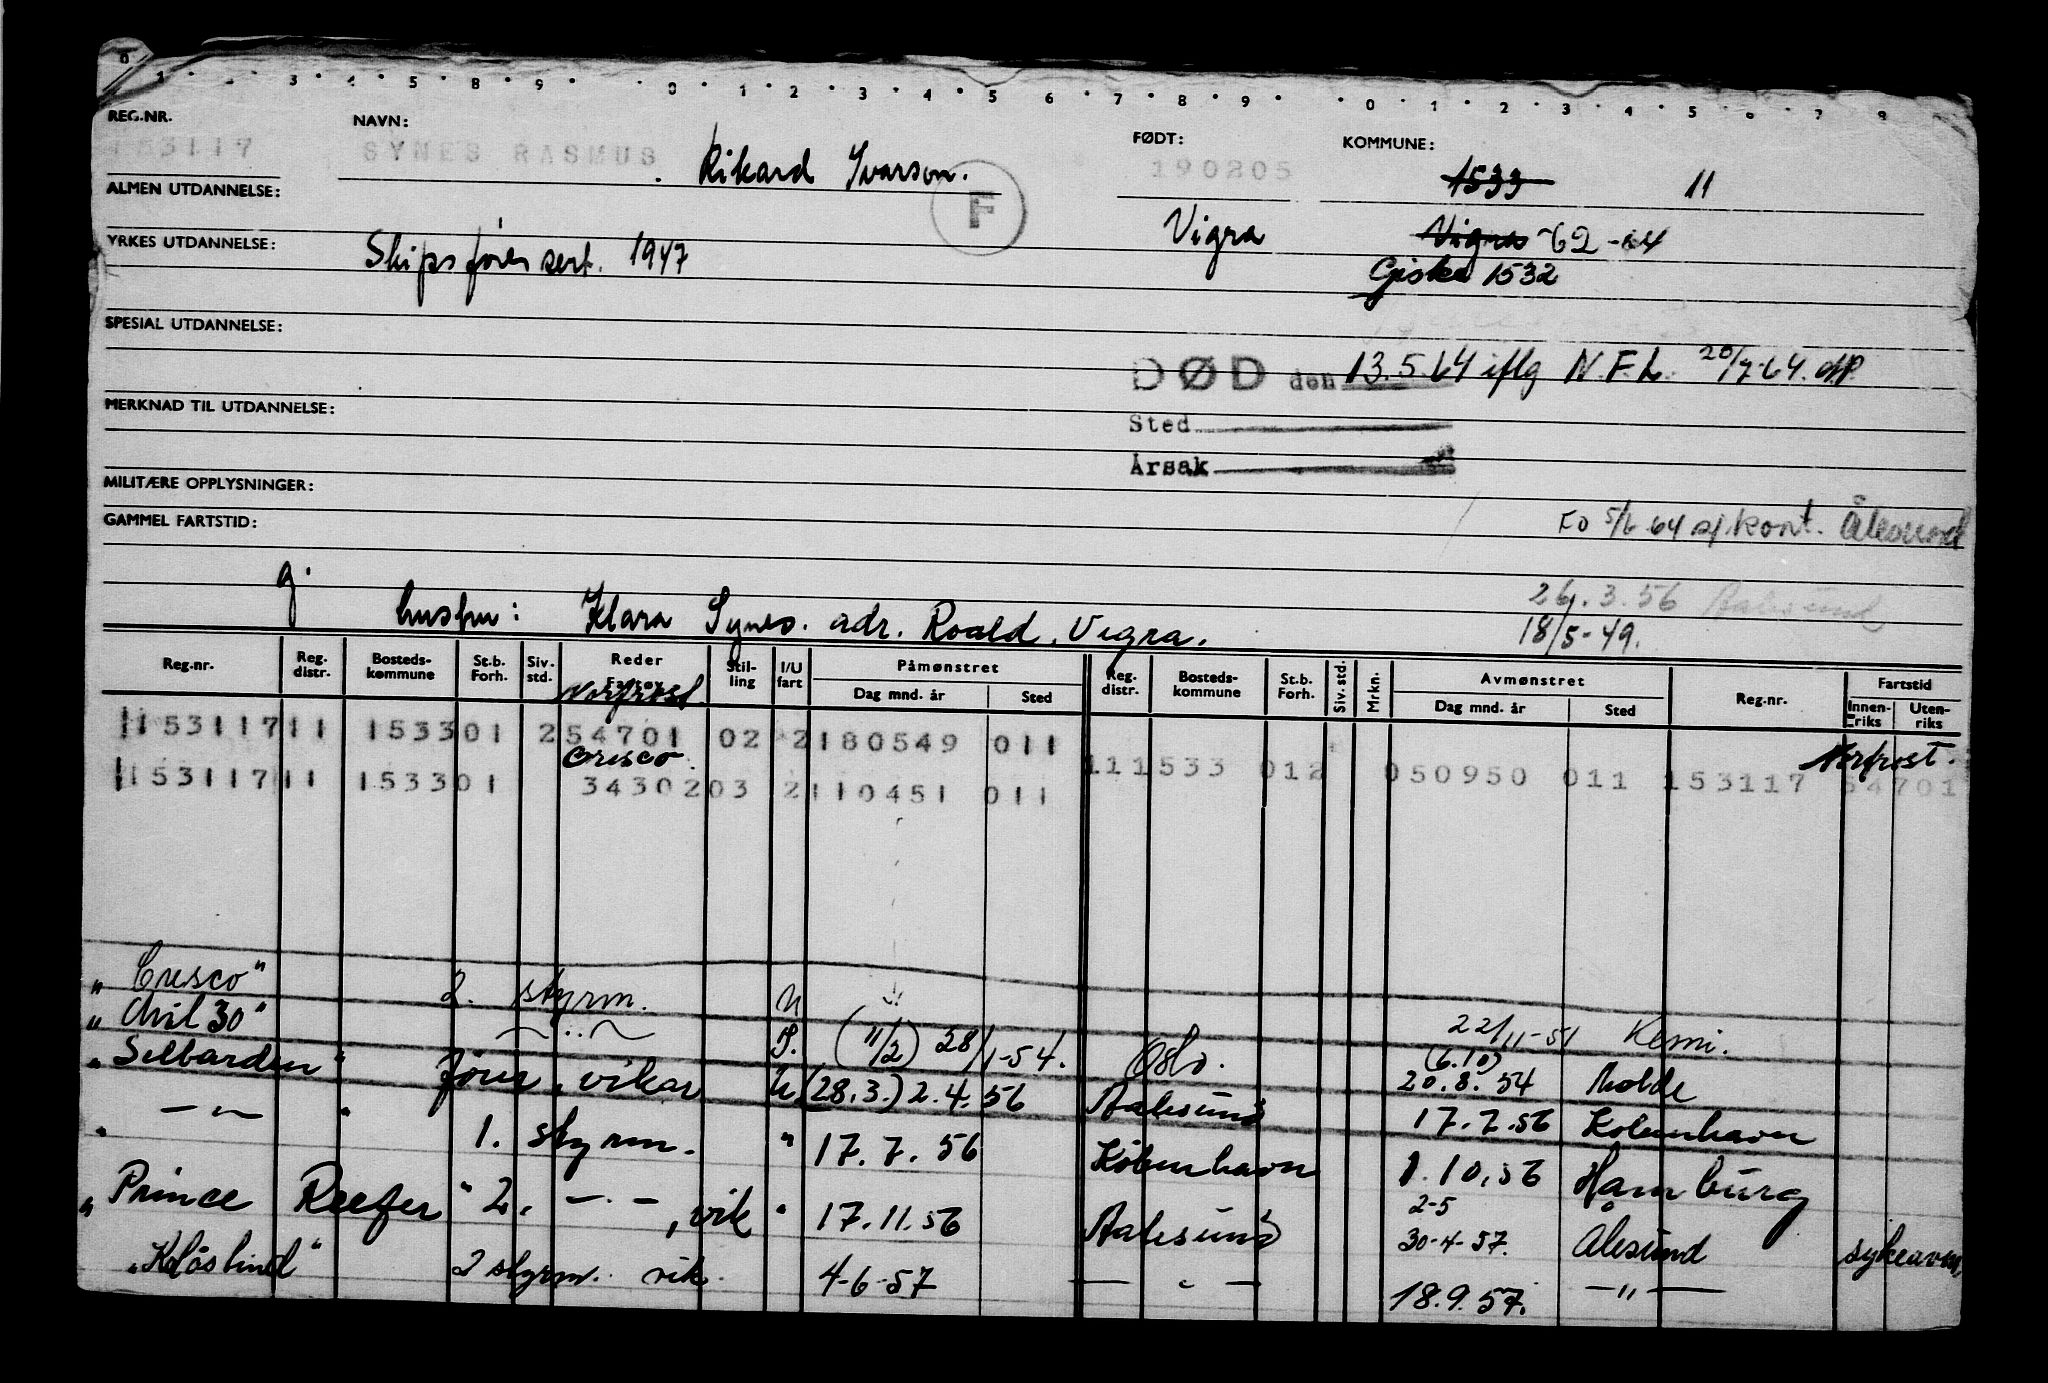 REG.NR. NAVN: FØDT: KOMMUNE:
153117 SYNES RASMUS Rikard Ivarson. 190205 1533 11
ALMEN UTDANNELSE: F
Vigra Vigra -62-64
YRKES UTDANNELSE: Skipsfører sert. 1947
Giske 1532
SPESIAL UTDANNELSE:
DØD den 13.5.64 iflg N.F.L. 20/7-64.
MERKNAD TIL UTDANNELSE:
Sted
Årsak
MILITÆRE OPPLYSNINGER:
GAMMEL FARTSTID:
FO 5/6 64 sj.kont. Ålesund
g.
26.3.56 Aalesund
hustru: Klara Synes. adr. Roald, Vigra. 18/5-49.
Reg.nr. Reg. distr. Bosteds-kommune St.b. Forh. Siv. std. Reder Fartøy Stil-ling I/U fart Påmønstret Dag mnd. år Sted Reg. distr. Bosteds-kommune St.b. Forh. Siv. std. Mrkn. Avmønstret Dag mnd. år Sted Reg.nr. Fartstid Innen-riks Uten-riks
Norfrost
153117 11 1533 01 2 54701 02 2 180549 011
Norfrost.
Cresco.
111533 012 050950 011 153117 54701
153117 11 1533 01 34302 03 2 110451 011
"Cresco" 2. styrm. U 22/11-51 Kemi.
30" — " — S. (11/2) 28/1-54. Oslo. (6.10) 20.8.54 Molde
"Selbarden" fører, vikar U (28.3.) 2.4.56 Aalesund 17.7.56 København
" — " — " 1. styrm. " 17.7.56 København 1.10.56 Hamburg
"Prince Reefer" 2. — " —, vik " 17.11.56 Aalesund 2-5 30-4-57. Ålesund sykeavm.
2 styrm. vik. 4-6-57 — " — 18.9.57. — " —